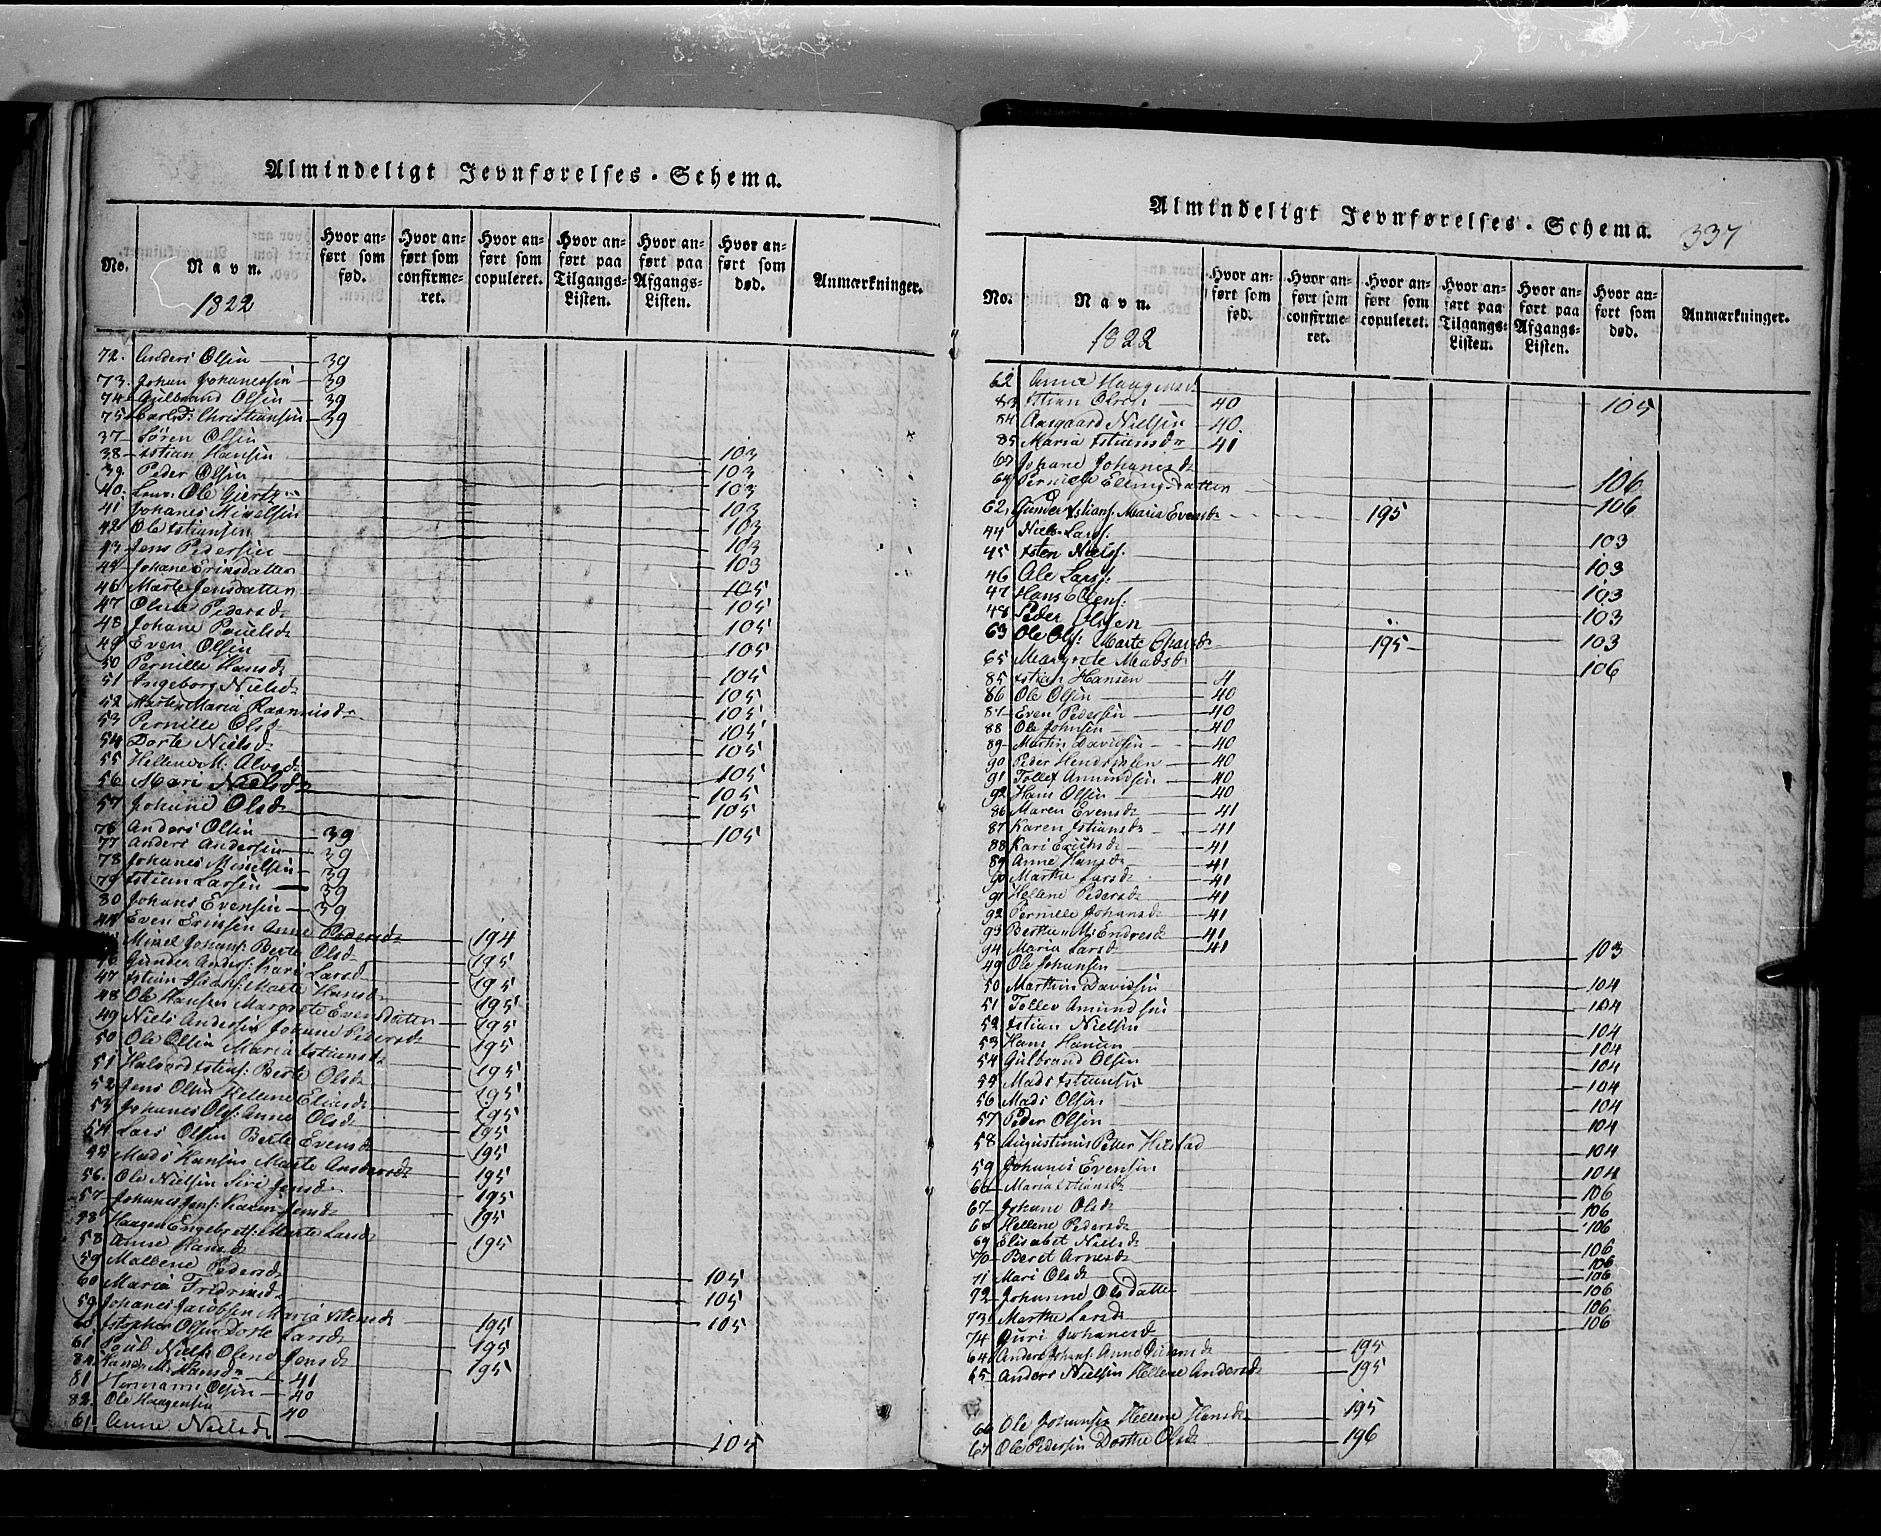 Almindeligt Jevnførelses-Schema.
No.
Navn.
1822
Hvor anført som fød.
Hvor anført som confirmeret.
Hvor anført som copuleret.
Hvor anført paa Tilgangs-Listen.
Hvor anført paa Afgangs-Listen.
Hvor anført som død.
Anmærkninger.
72. Anders Olsen 39
73. Johan Johanessen 39
74 Gulbrand Olsen 39
75 Christiansen 39
37 Søren Olsen 103
38 Hansen 103
39. Peder Olsen 103
40. Ole 103
41 Johanes Mikelsen 103
42 Ole 103
43 Jens Pedersen 103
Johane Ericsdatter 105
46 Marte Jensdatter 105
47 Oline Pedersd 105
48 Johane Pouelsd 105
49 Even Olsen
50 Pernille Hansd 105
51 Ingeborg Nielsd 105
52 Maria Rasmusdr 105
53 Pernille Olsd 105
54 Dorte Nielsd 105
55 Hellene M: 105
56 Mari Nielsdr 105
57 Johane Olsd 105
76 Anders Olsen 39
77 Anders Andersen 39
78 Johanes Mikelsen 39
79 Larsen 39
80 Johans Evensen 39
44 Even Ericsen Anne Pedersd 194
Mikel Johans: Berte Olsd 195
46 Gunder Anders: Kari Larsd 195
47 Marte Hansd 195
48 Ole Hansen Margrete Evensdatter 195
49 Niels Andersen Johane Pedersd 195
50 Ole Olsen Maria 195
51 Halvord Berte Olsd 195
52 Jens Olsen Hellene 195
53 Johanes Ols: Anne Olsd 195
54 Lars Olsen Berte Evensd 195
55 Mads Hansen Marte Andersd 195
56. Ole Nielsen Siri Jensd 195
57 Johanes Jens: Karen Jensd 195
58 Haagen Engebrets: Marte Larsd 195
58 Anne Hansd 105
59 Mallene Pedersd 105
60 Maria 105
59 Johanes Jacobsen Maria 195
60 Olsen Dorte Larsd 195
61 Poul Niels: Olene Jensd 195
84 M: Hansdr 41
81 Olsen 40
82 Ole Haagensen 40
61. Anne Nielsd 105
Almindeligt Jevnførelses-Schema.
337
No.
Navn.
1822
Hvor anført som fød.
Hvor anført som confirmeret.
Hvor anført som copuleret.
Hvor anført paa Tilgangs-Listen.
Hvor anført paa Afgangs-Listen.
Hvor anført som død.
Anmærkninger.
62 Anne Haagensd 105
83 Olsen 40
84 Aasgaard Nielsen 40.
85 Maria 41
Johane Johanesd 106
64 Pernille Ellingsdatter 106
62. Gunder Maria Evensd 195
44 Niels Lars: 103
45 Niels: 103
46 Ole Lars: 103
47 Hans 103
48 Peder Olsen 103
63 Ole Ols: Marte 195
65 Margrete Madsd 106
85 Hansen
86 Ole Olsen 40
87 Even Pedersen 40
88 Ole Johnsen 40
89 Martin Davidsen 40
90 Peder Hendriksen 40
91 Tollef Amundsen 40
92 Hans Olsen 40
86 Maren Evensd 41
87 Karen 41
88 Kari Ericksd 41
89 Anne Hansd 41
90 Marthe Larsd 41
91 Hellene Pedersd 41
92 Pernille Johansd 41
93 Berthe M: Endresd 41
94 Maria Larsd 41
49 Ole Johansen 103
50 Marthin Davidsen 104
51 Tollev Amundsen 104
52 Nielsen 104
53 Hans Hansen 104
54 Gulbrand Olsen 104
55 Mads 104
56 Mads Olsen 104
57 Peder Olsen 104
58 Augustinus Peter 104
59 Johanes Evensen 104
66 Maria 106
67 Johane Olsd 106
68 Hellene Pedersd 106
69 Elisabet Nielsd 106
70 Beret Arnesd 106
71 Mari Olsd 106
72 Johanne Olsdatter 106
73 Marthe Larsd 106
74 Guri Johanesd 106
64 Anders Johans: Anne 195
65 Anders Nielsen Hellene Andersd 195
66 Ole Johansen Hellene Hansd 195
67 Ole Pedersen Dorthe Olsd 196